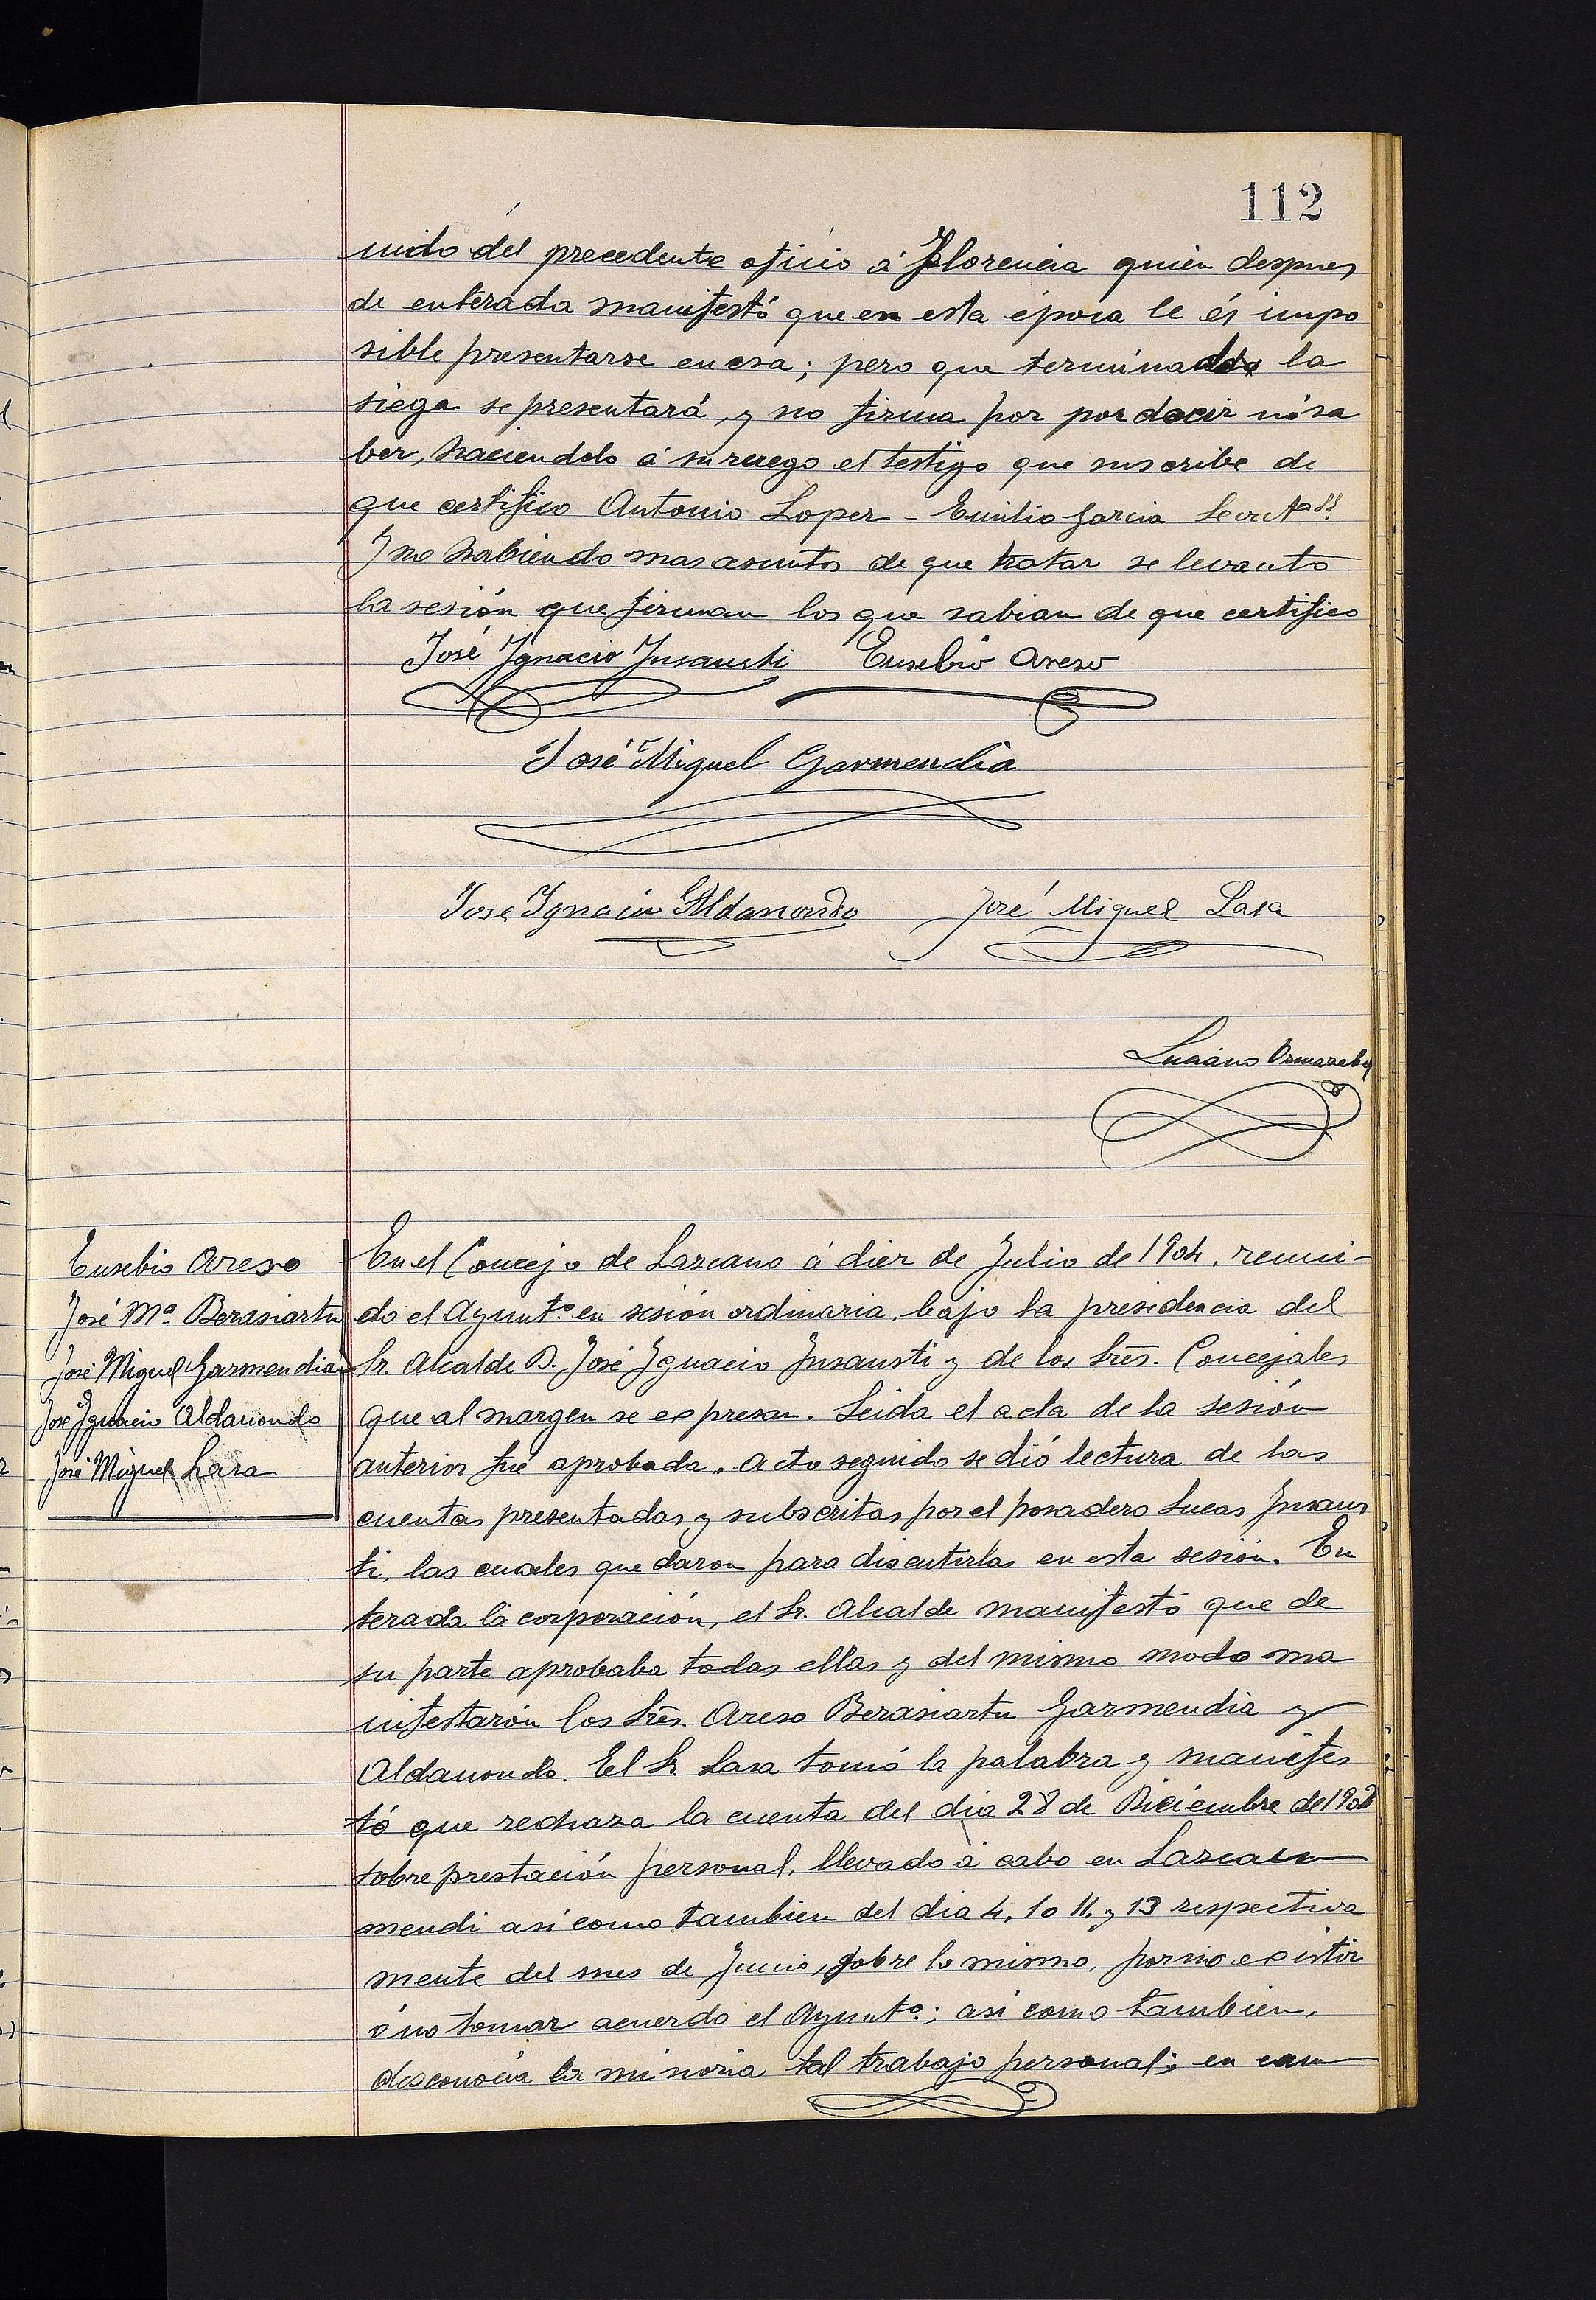 112
nido del precedente oficio á Florencia quien despues
de enterada manifestó que en esta época le és impo
sible presentarse en esa; pero que terminada la
siega se presentará, y no firma por por decir nó sa
ber, haciendolo á su ruego el testigo que suscribe de
que certifico Antonio Loper - Emilio Garcia Secret.
Y no habiendo mas asuntos de que tratar se levanto
la sesión que firman los que sabian de que certifico
José Ygnacio Ynsausti Eusebio Areso
José Miguel Garmendia
Jose Ygnacio Aldanondo José Miguel Lasa
Luciano Ormazabal
Eusebio Areso
José Mª Berasiartu
José Miguel Garmendia
José Ygnacio Aldanondo
José Miguel Lasa
En el Concejo de Lazcano á diez de Julio de 1904, reuni-
do el Ayuntº en sesión ordinaria, bajo la presidencia del
Sr. Alcalde D. José Ygnacio Ynsausti y de los Sres. Concejales
que al margen se expresan. Leida el acta de la sesión
anterior fué aprobada. Acto seguido se dió lectura de las
cuentas presentadas y subscritas por el posadero Lucas Ynsaus
ti, las cuales quedaron para discutirlas en esta sesión. En
terada la corporación, el Sr. Alcalde manifestó que de
su parte aprobaba todas ellas y del mismo modo ma
nifestarón los Sres. Areso Berasiartu Garmendia y
Aldanondo. El Sr. Lasa tomó la palabra y manifes
tó que rechaza la cuenta del dia 28 de Diciembre de
sobre prestación personal, llevado á cabo en Lazcano
mendi asi como tambien del dia 4, 10 11, y 13 respectiva
mente del mes de Junio, sobre lo mismo, por no existir
ó no tomar acuerdo el Ayuntº; asi como tambien,
desconocia la minoria tal trabajo personal; en cam